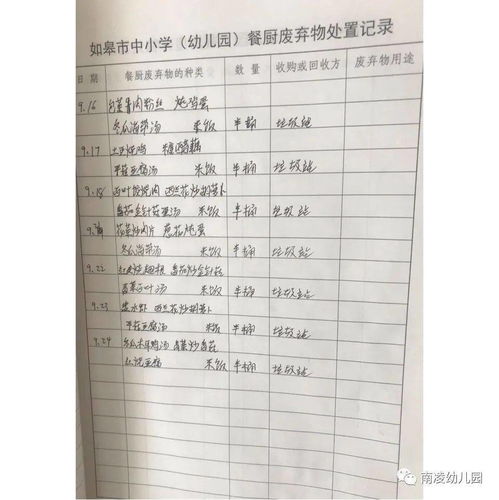 如皋市中小学（幼儿园）餐厨废弃物处置记录
日期 餐厨废弃物的种类 数量 收购或回收方 废弃物用途
9.16
冬瓜海带汤 米饭 半桶 垃圾站
9.17 土豆烧鸡
平菇豆腐汤 米饭 半桶 垃圾站
9.18 百叶 烧肉 西兰花炒胡萝卜
番茄金针菇蛋汤 米饭 半桶 垃圾站
花菜炒肉片 葱花炖蛋
冬瓜海带汤 米饭 半桶 垃圾站
9.22 番茄炒金针菇
百叶汤 米饭 半桶 垃圾站
9.23 盐水虾 西兰花炒胡萝卜
平菇豆腐汤 米饭 半桶 垃圾站
9.24
豆腐 米饭 半桶 垃圾站
南凌幼儿园